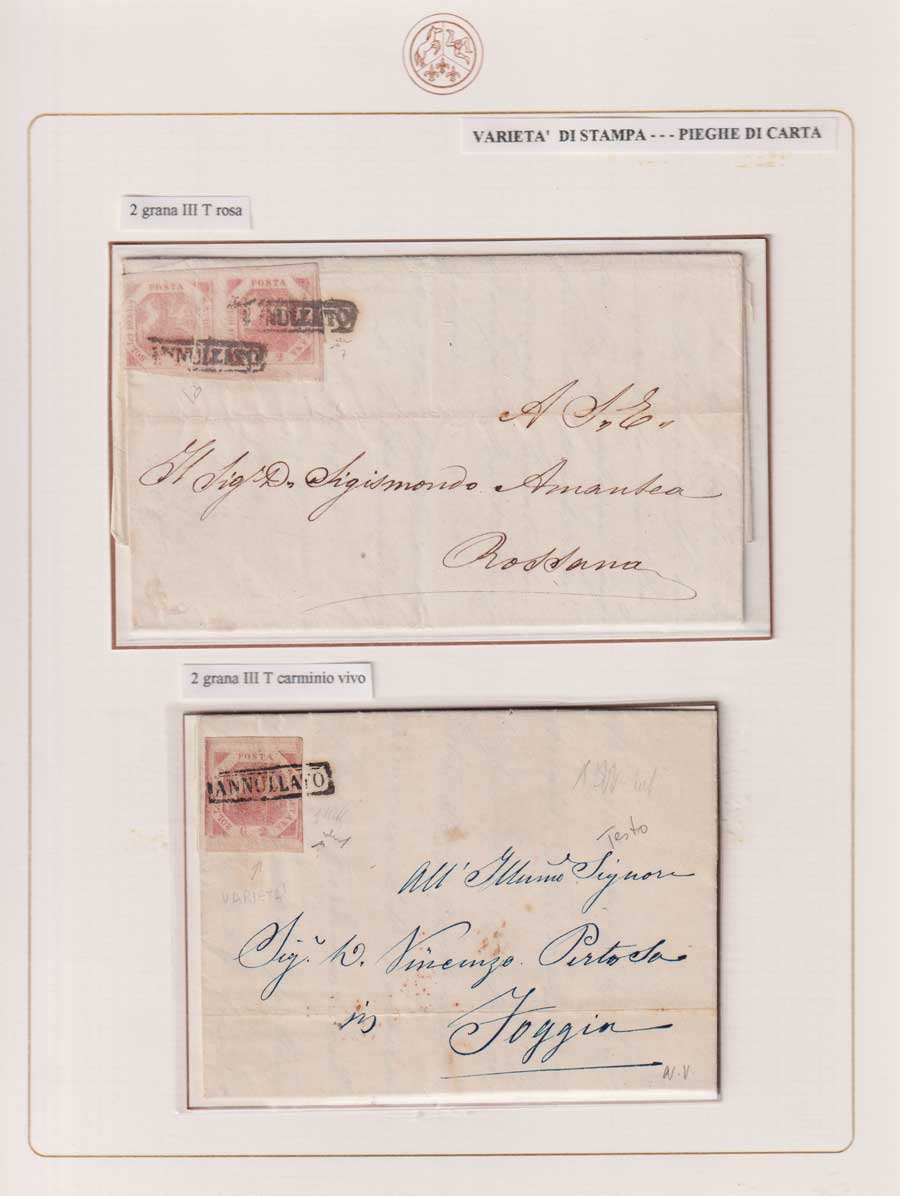 VARIETA' DI STAMPA - - - PIEGHE DI CARTA
2 grana III T rosa
POSTA POSTA
ANNULLATO
ANNULLATO
A S. E.
Il Sig.r D. Sigismondo Amantea
Rossano
2 grana III T carminio vivo
POSTA
ANNULLATO
G 2
VARIETA'
Testo
All' Illumo Signore
Sig.r D. Vincenzo Pertosa
in
Foggia
N.V.